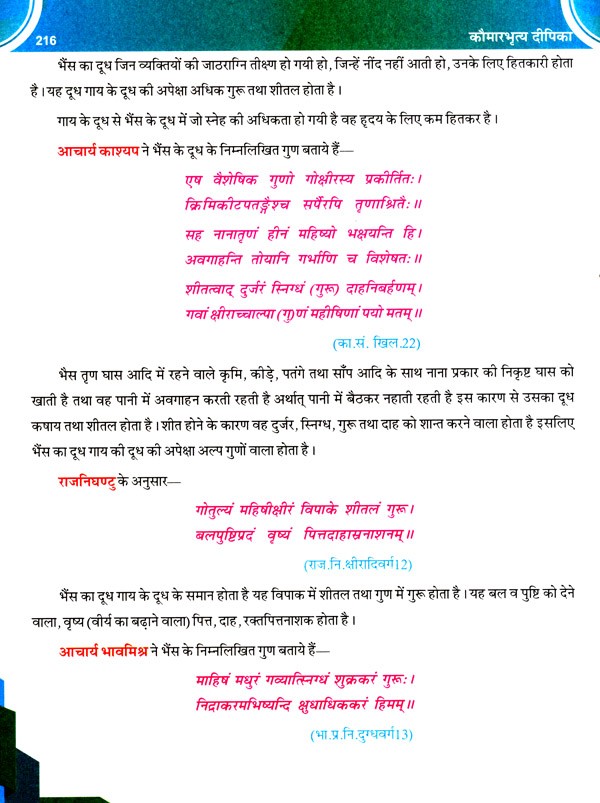 216
कौमारभृत्य दीपिका
भैंस का दूध जिन व्यक्तियों की जाठराग्नि तीक्ष्ण हो गयी हो, जिन्हें नींद नहीं आती हो, उनके लिए हितकारी होता
है। यह दूध गाय के दूध की अपेक्षा अधिक गुरू तथा शीतल होता है।
गाय के दूध से भैंस के दूध में जो स्नेह की अधिकता हो गयी है वह हृदय के लिए कम हितकर है।
आचार्य काश्यप ने भैंस के दूध के निम्नलिखित गुण बताये हैं—
एष वैशेषिक गुणो गोक्षीरस्य प्रकीर्तितः।
क्रिमिकीटपतङ्गैश्च सर्पैरपि तृणाश्रितैः॥
सह नानातृणं हीनं महिष्यो भक्षयन्ति हि।
अवगाहन्ति तोयानि गर्भाणि च विशेषतः॥
शीतत्वाद् दुर्जरं स्निग्धं (गुरू) दाहनिबर्हणम्।
गवां क्षीराच्चाल्पा (गु)णं महीषिणां पयो मतम्॥
(का.सं. खिल.22)
भैस तृण घास आदि में रहने वाले कृमि, कीड़े, पतंगे तथा साँप आदि के साथ नाना प्रकार की निकृष्ट घास को
खाती है तथा वह पानी में अवगाहन करती रहती है अर्थात् पानी में बैठकर नहाती रहती है इस कारण से उसका दूध
कषाय तथा शीतल होता है। शीत होने के कारण वह दुर्जर, स्निग्ध, गुरू तथा दाह को शान्त करने वाला होता है इसलिए
भैंस का दूध गाय की दूध की अपेक्षा अल्प गुणों वाला होता है।
राजनिघण्टु के अनुसार—
गोतुल्यं महिषीक्षीरं विपाके शीतलं गुरू।
बलपुष्टिप्रदं वृष्यं पित्तदाहास्रनाशनम्॥
(राज.नि.क्षीरादिवर्ग12)
भैंस का दूध गाय के दूध के समान होता है यह विपाक में शीतल तथा गुण में गुरू होता है। यह बल व पुष्टि को देने
वाला, वृष्य (वीर्य का बढ़ाने वाला) पित्त, दाह, रक्तपित्तनाशक होता है।
आचार्य भावमिश्र ने भैंस के निम्नलिखित गुण बताये हैं—
माहिषं मधुरं गव्यात्स्निग्धं शुक्रकरं गुरूः।
निद्राकरमभिष्यन्दि क्षुधाधिककरं हिमम्॥
(भा.प्र.नि.दुग्धवर्ग13)